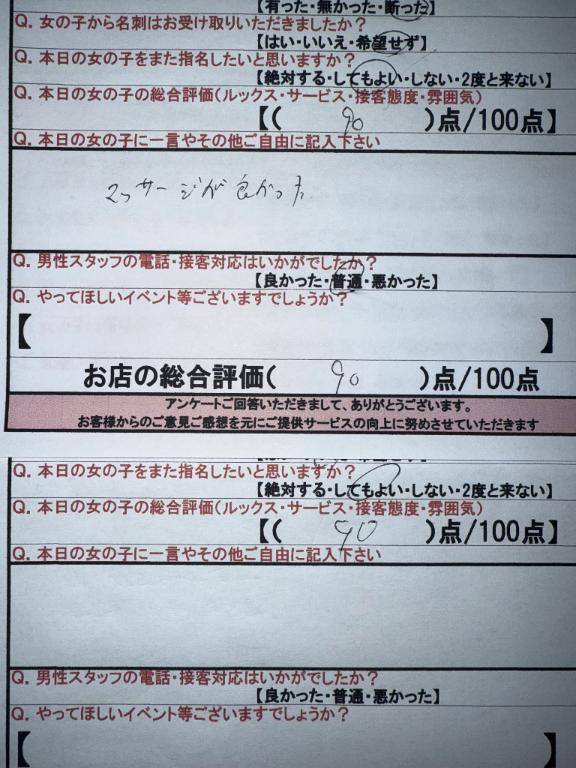 【有った・無かった・断った】
Q. 女の子から名刺はお受け取りいただきましたか?
【はい・いいえ・希望せず】
Q. 本日の女の子をまた指名したいと思いますか?
【絶対する・してもよい・しない・2度と来ない】
Q. 本日の女の子の総合評価(ルックス・サービス・接客態度・雰囲気)
【( 90 )点/100点】
Q. 本日の女の子に一言やその他ご自由に記入下さい
マッサージが良かった
Q. 男性スタッフの電話・接客対応はいかがでしたか?
【良かった・普通・悪かった】
Q. やってほしいイベント等ございますでしょうか?
【 】
お店の総合評価( 90 )点/100点
アンケートご回答いただきまして、ありがとうございます。
お客様からのご意見ご感想を元にご提供サービスの向上に努めさせていただきます
Q. 本日の女の子をまた指名したいと思いますか?
【絶対する・してもよい・しない・2度と来ない】
Q. 本日の女の子の総合評価(ルックス・サービス・接客態度・雰囲気)
【( 90 )点/100点】
Q. 本日の女の子に一言やその他ご自由に記入下さい
Q. 男性スタッフの電話・接客対応はいかがでしたか?
【良かった・普通・悪かった】
Q. やってほしいイベント等ございますでしょうか?
【 】